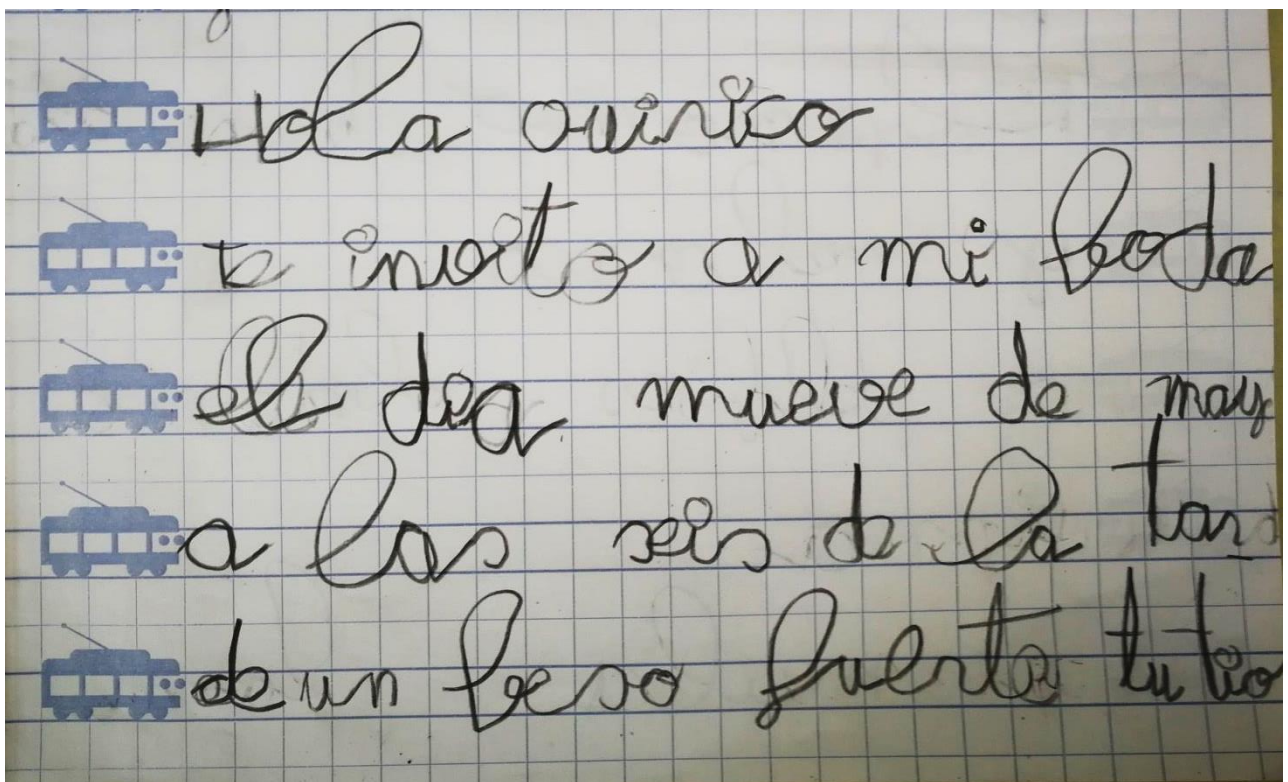 Hola ouirico
te invito a mi boda
el dia mueve de may
a las seis de la tar
de un beso fuerte tu tio